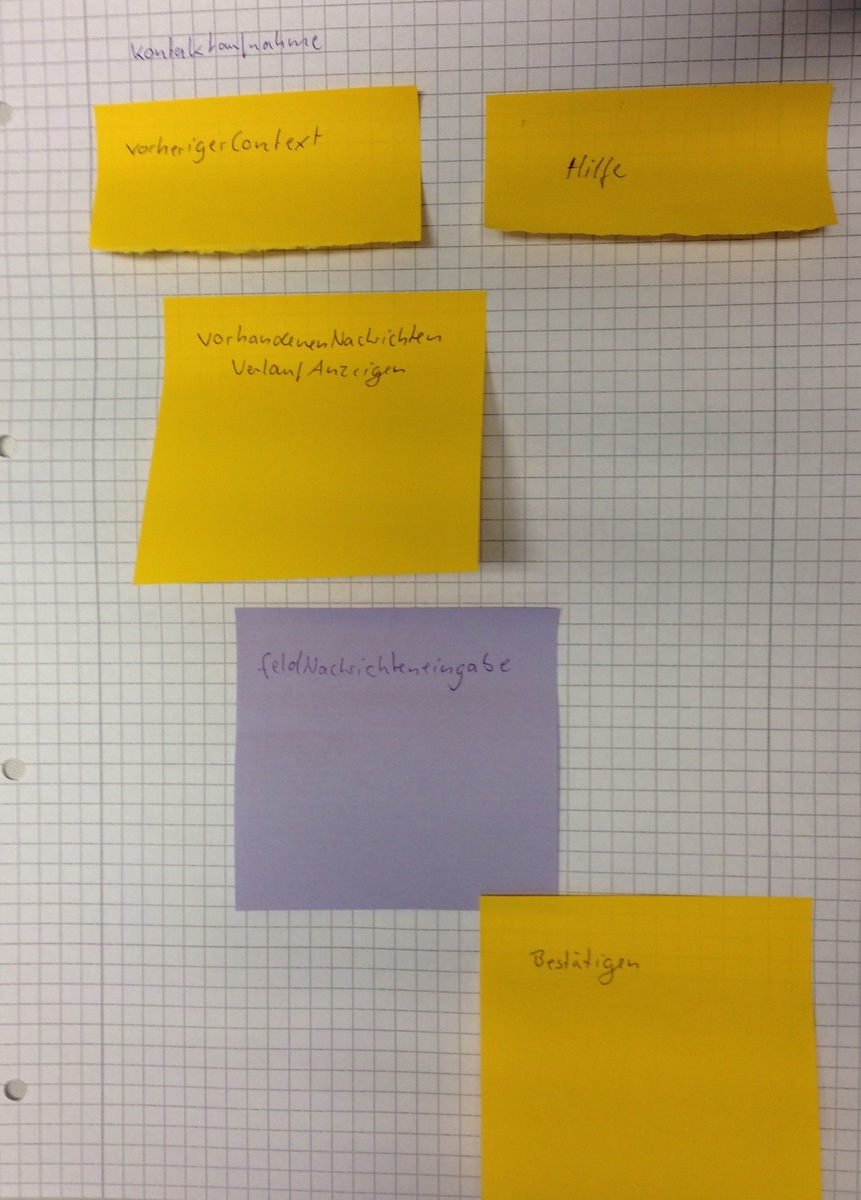 Kontaktaufnahme
vorherigerContext
Hilfe
vorhandenenNachrichten
VerlaufAnzeigen
feldNachrichteneingabe
Bestätigen